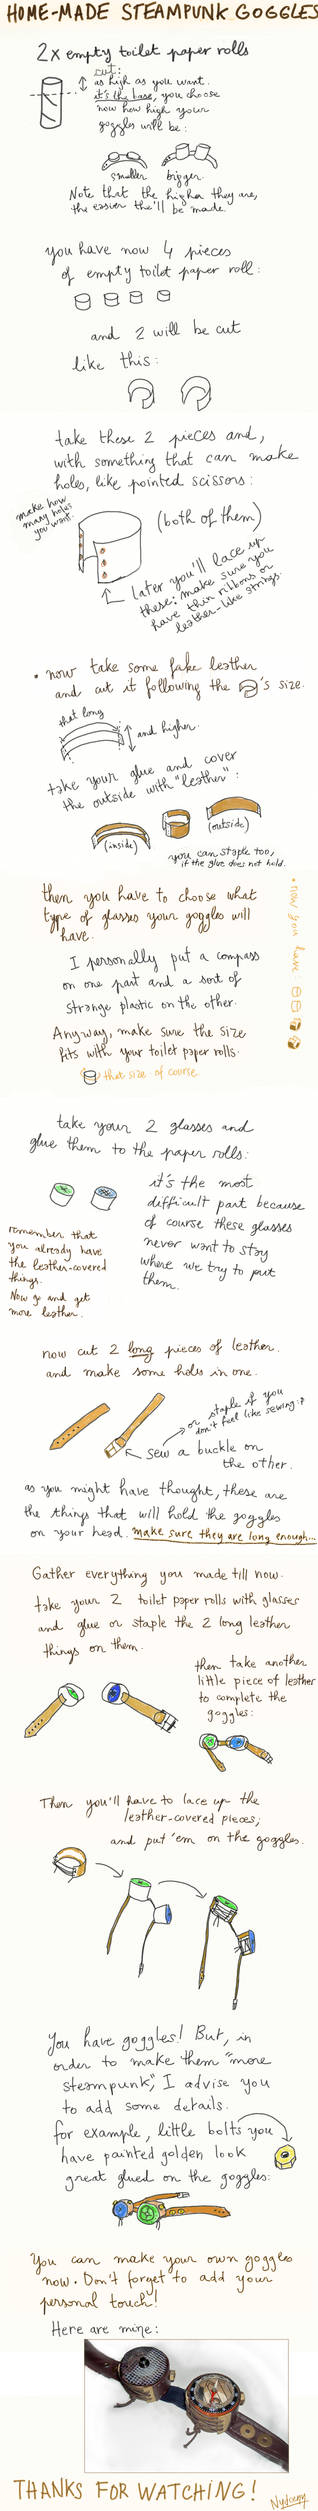 HOME-MADE STEAMPUNK GOGGLES
2x empty toilet paper rolls
cut:
as high as you want.
it's the base, you choose
now how high your
goggles will be:
smaller bigger
Note that the higher they are,
the easier the'll be made.
you have now 4 pieces
of empty toilet paper roll:
and 2 will be cut
like this:
take these 2 pieces and,
with something that can make
holes, like pointed scissors:
make how
many holes
you want.
(both of them)
Later you'll lace up
these: make sure you
have thin ribbons or
leather-like strings.
• now take some fake leather
and cut it following the 's size.
that long
and higher.
take your glue and cover
the outside with "leather":
(inside)
(outside)
you can staple too,
if the glue does not hold.
then you have to choose what
type of glasses your goggles will
have.
• now you have:
I personally put a compass
on one part and a sort of
strange plastic on the other.
Anyway, make sure the size
fits with your toilet paper rolls.
that size of course
take your 2 glasses and
glue them to the paper rolls:
it's the most
difficult part because
of course these glasses
never want to stay
where we try to put
them.
remember that
you already have
the leather-covered
things.
Now go and get
more leather.
now cut 2 long pieces of leather.
and make some holes in one.
or staple if you
don't feel like sewing :p
sew a buckle on
the other.
as you might have thought, these are
the things that will hold the goggles
on your head. make sure they are long enough...
Gather everything you made till now.
take your 2 toilet paper rolls with glasses
and glue or staple the 2 long leather
things on them.
then take another
little piece of leather
to complete the
goggles:
Then you'll have to lace up the
leather-covered pieces;
and put 'em on the goggles.
You have goggles! But, in
order to make them "more
steampunk", I advise you
to add some details.
for example, little bolts you
have painted golden look
great glued on the goggles:
You can make your own goggles
now. Don't forget to add your
personal touch!
Here are mine:
THANKS FOR WATCHING!